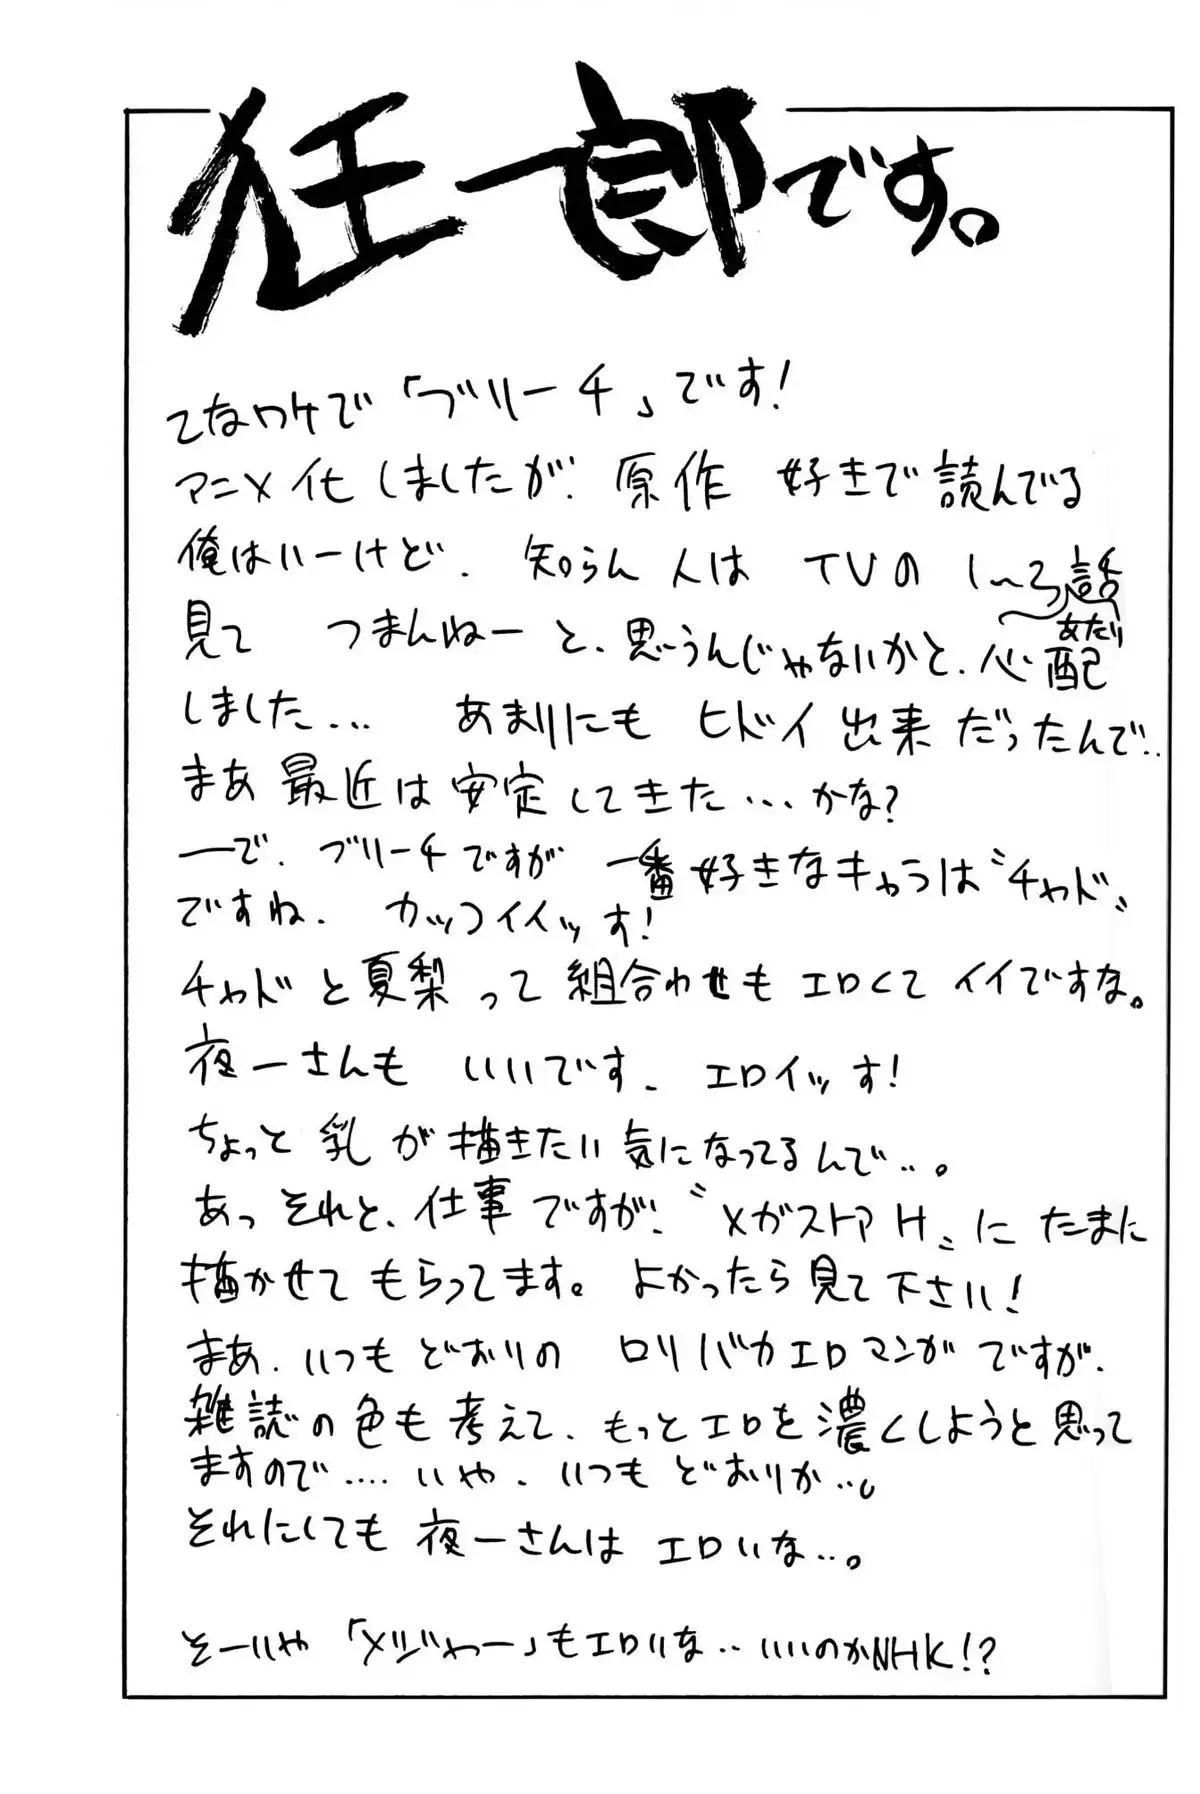 狂一郎です。
てなワケで「ブリーチ」です!
アニメ化しましたが、原作 好きで読んでる
俺はいーけど、知らん人は TVの 1〜3話あたり
見て つまんねーと、思うんじゃないかと、心配
しました... あまりにも ヒドイ出来だったんで..
まあ最近は安定してきた...かな?
ーで、ブリーチですが 一番好きなキャラは〝チャド〟
ですね、カッコイイッす!
チャドと夏梨って組合わせもエロくてイイですな。
夜一さんも いいです、エロイッす!
ちょっと乳が描きたい気になってるんで..。
あっそれと、仕事ですが、〝メガストアH〟に たまに
描かせてもらってます。よかったら見て下さい!
まあ、いつもどおりの ロリバカエロマンガですが、
雑誌の色も考えて、もっとエロを濃くしようと思って
ますので....いや、いつもどおりか..。
それにしても夜一さんは エロいな..。
そーいや「メジャー」もエロいな..いいのかNHK!?